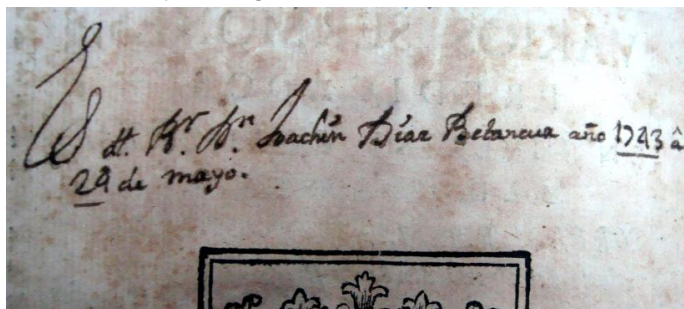 Es del Br. Dn Joachin Díaz Betancur año 1743 â
29 de mayo.